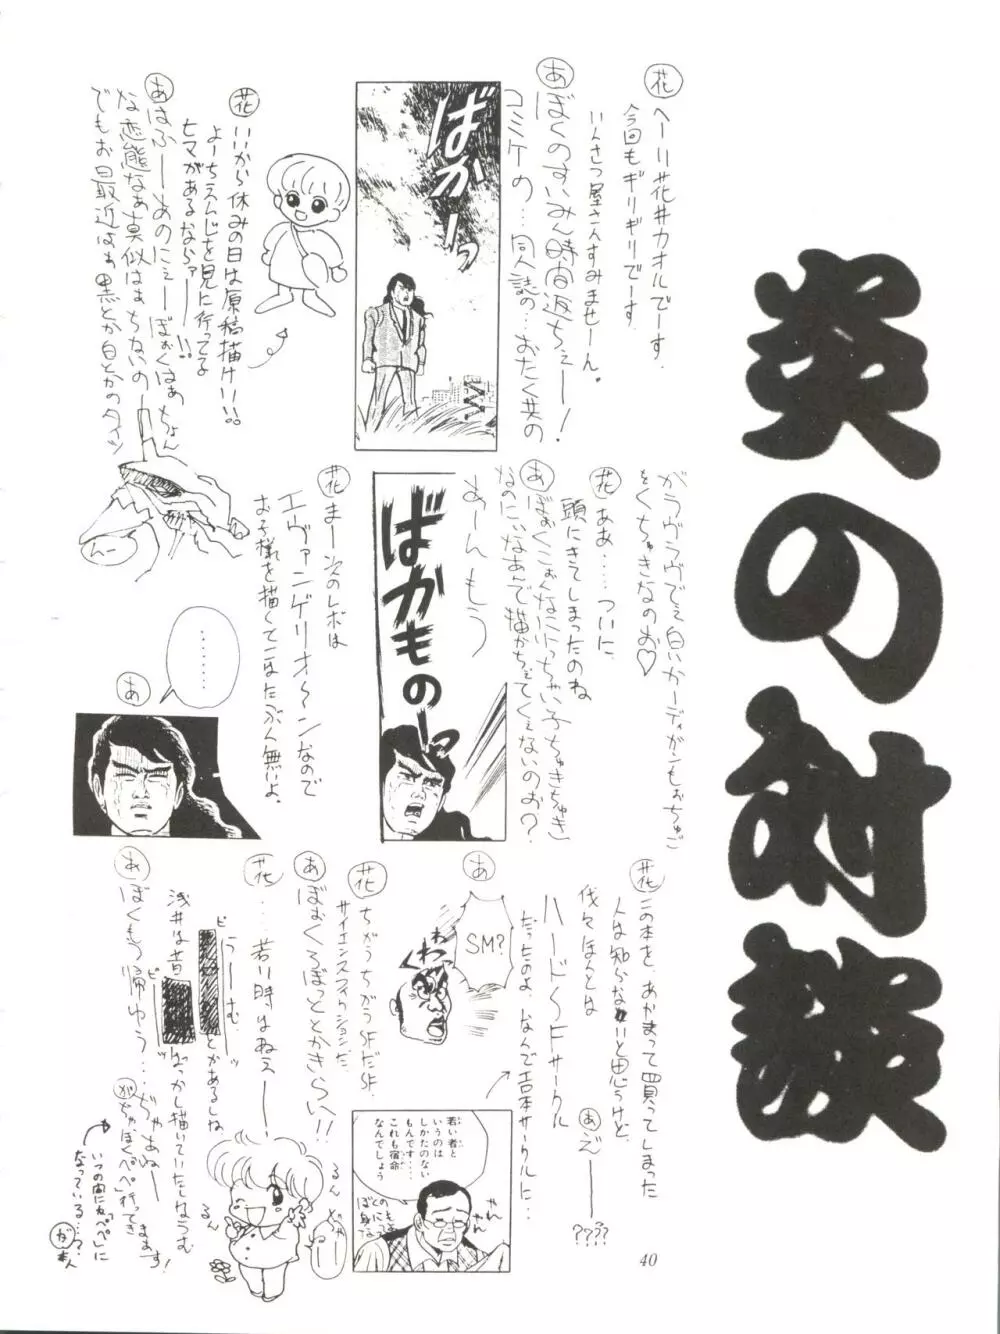 炎の対談
花 ヘーリ花井カオルでーす。
今回もギリギリでーす
いんさつ屋さんすみませーん。
あ ぼくのすいみん時間返ちぇー！
コミケの…同人誌の…おたく共の
ばかーっ
花 いいから休みの日は原稿描け!!!!
よーちえんじを見に行ってる
ヒマがあるならァー!!
あ はふーーあのにぇーぼぉくはぁちょん
な変態なぁ真似はぁちないの
でもお最近はぁ黒とか白とかのタイツ
がラヴラヴでえ白いカーディガンもぉちゅご
をくちゅきなのぉ♡
花 ああ……ついに
頭にきてしまったのね
あ ぼぉくこぉんなにいっちゃい子ちゅきちゅき
なのにいなあんで描かちぇてくえないのお？
あーんもう
ばかものーっ
花 まー次のレボは
エヴァンゲリオ〜ンなので
お子様を描くてこはたぶん無いよ。
んー
………
あ
花 この本を、あかまって買ってしまった
人は知らないと思うけど、
伐々ほんとは
ハードSFサークル
だったのよ、なんでエロ本サークルに…
あ ぞーー????
あ SM?
くわっ
花 ちがうちがうSFだSF
サイエンスフィクションだ
あ ぼぉくろぼっととかきらい!!
花 …若い時はねえーー
ピーうーーむ とかあるしね
浅井は昔 ピー ばっかし描いていたしなうむ
あ ぼくもう帰ゆう…ぢゃあねーー
が ぢゃぼくペペ行ってきまぁす！
いつの間に「ペペ」に
なっている…？
が 本人
若い者と
いうのは
しかたのない
もんです…
これも宿命
なんでしょう
るんるん
40